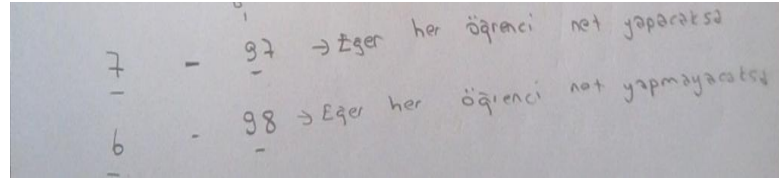 7 - 97 → Eğer her öğrenci net yapacaksa
6 - 98 → Eğer her öğrenci net yapmayacaksa